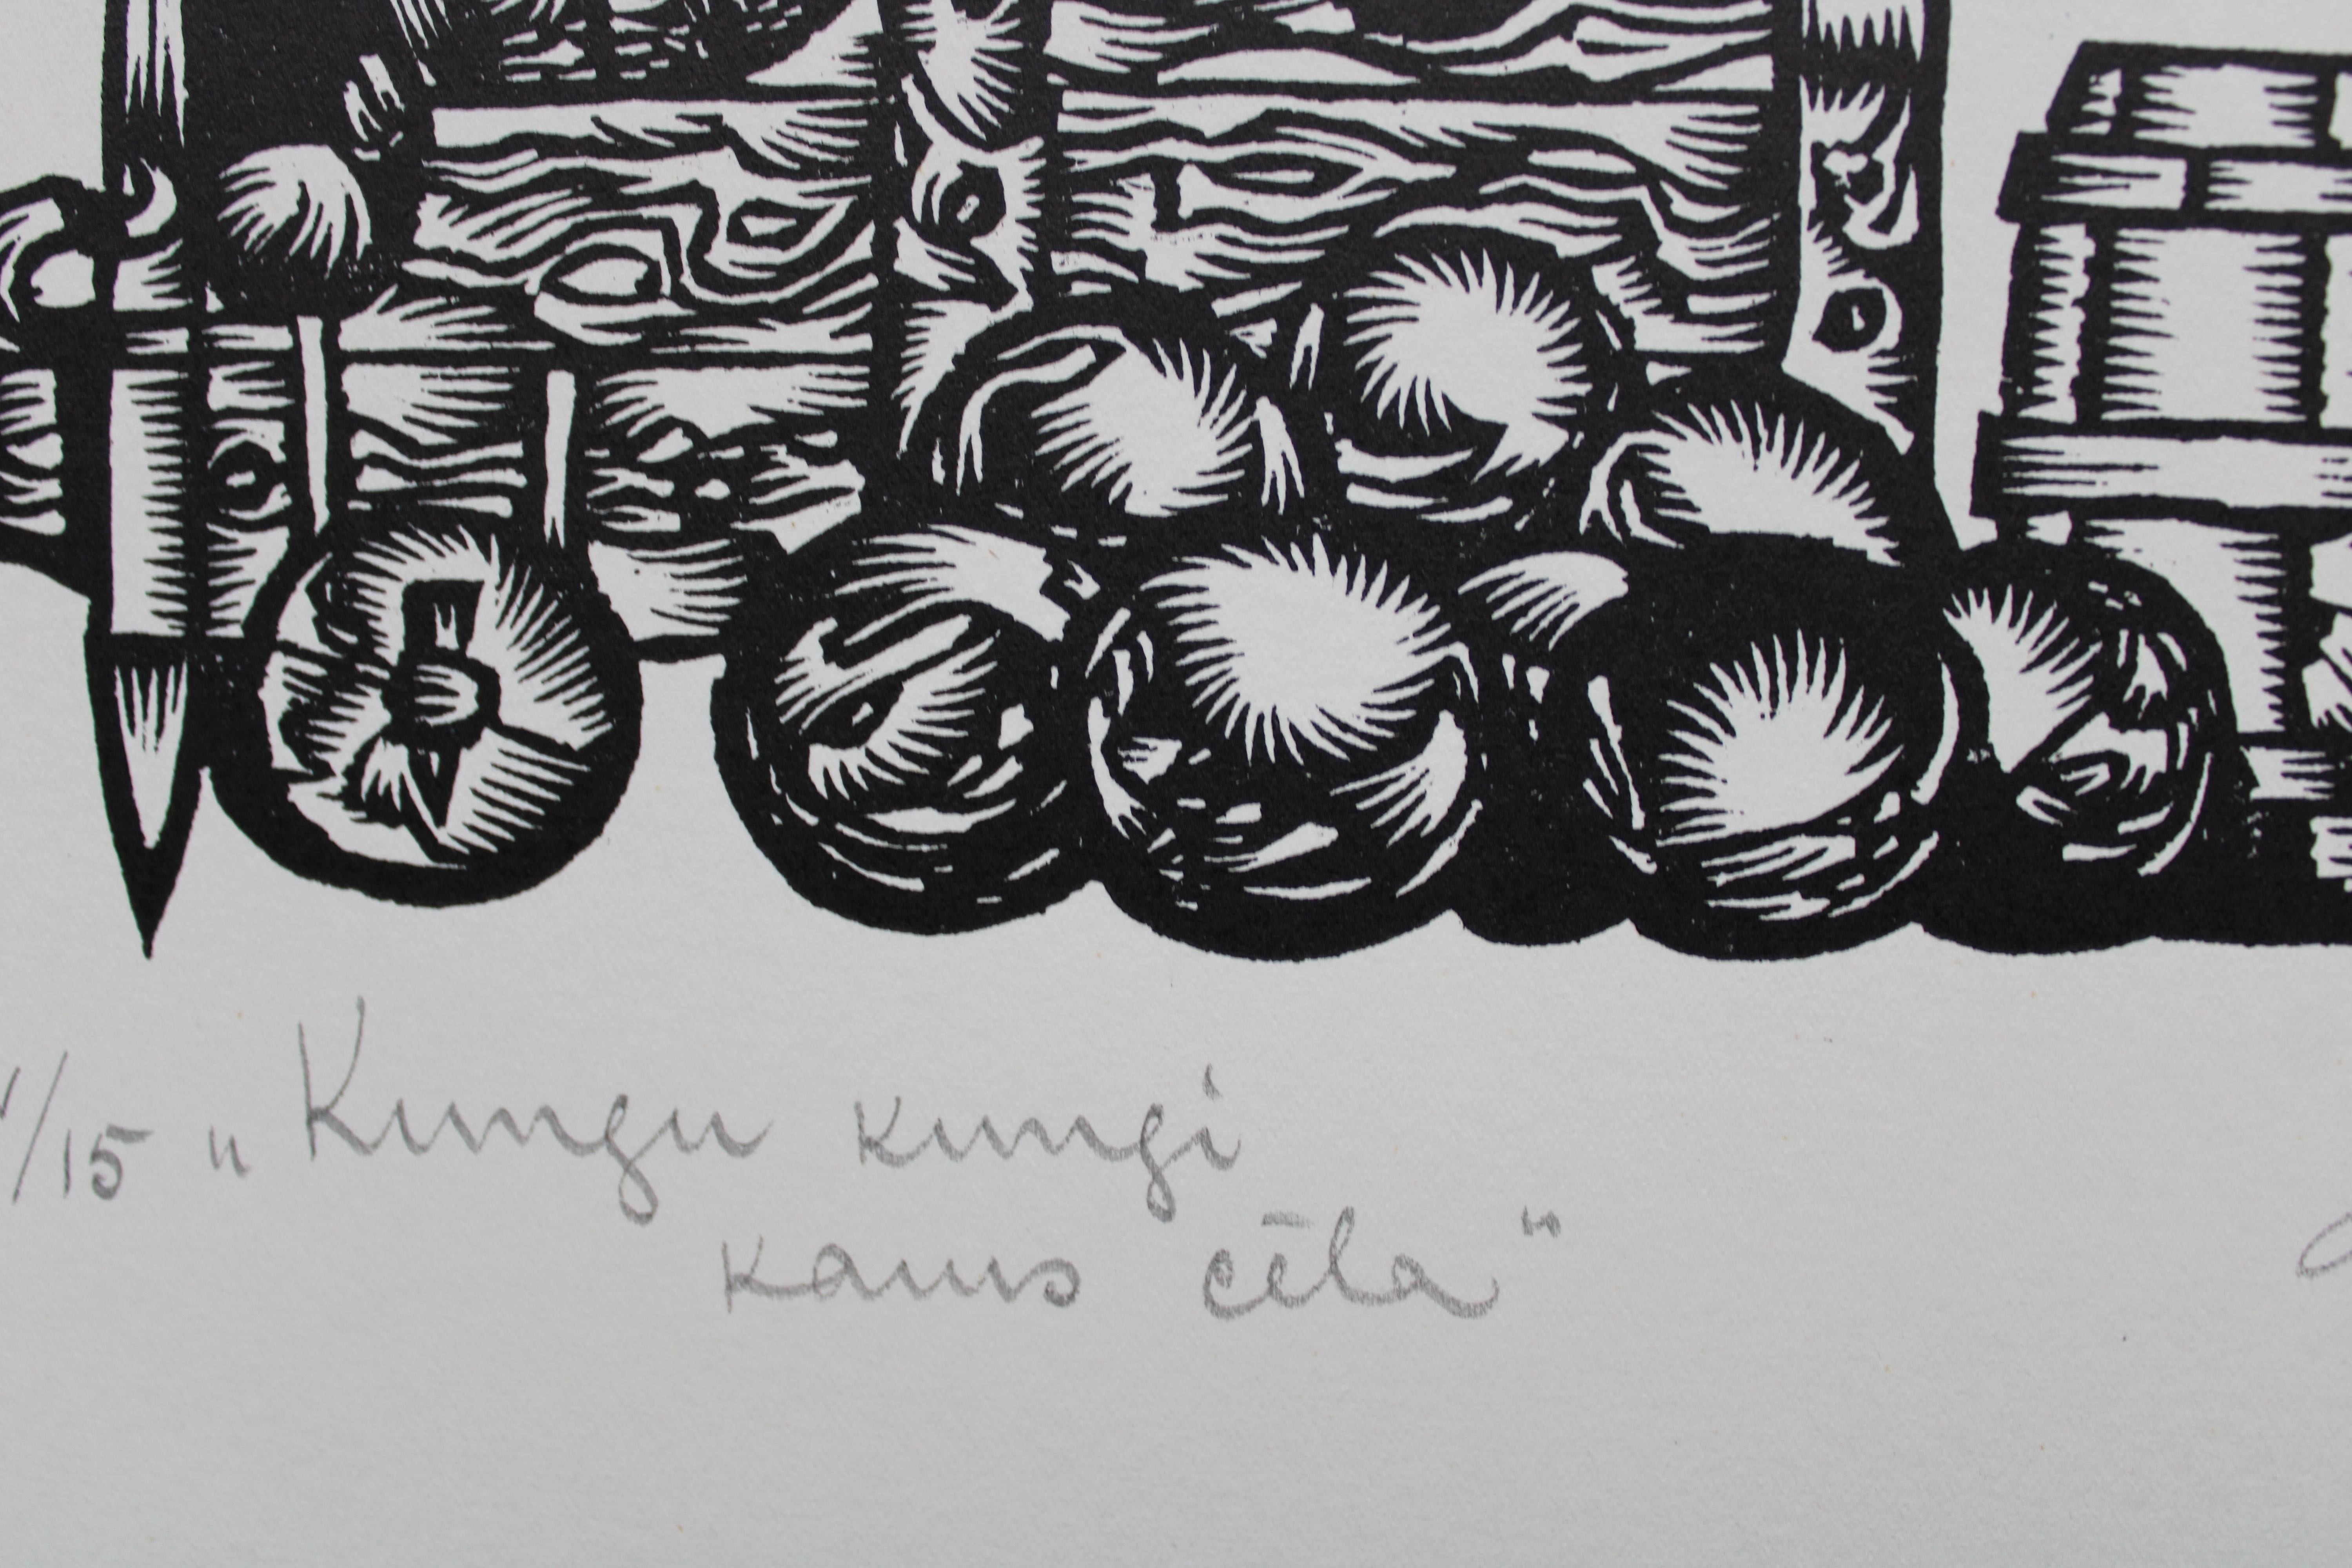 /15 „Kungu kungi
kaus cēla“